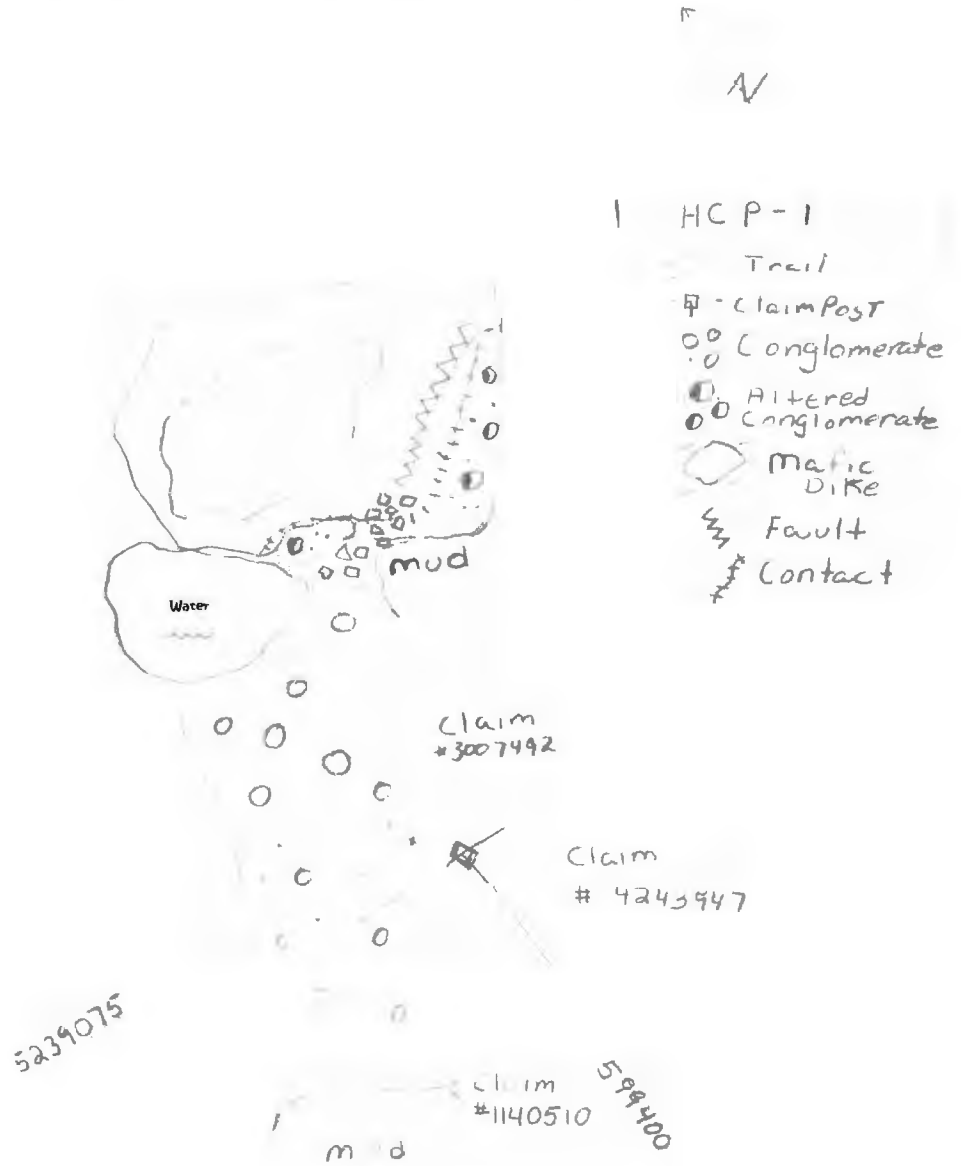 N
HCP-1
Trail
- Claim Post
Conglomerate
Altered
Conglomerate
Mafic
Dike
Fault
Contact
mud
Water
Claim
#3007492
Claim
5239075
Claim
#1140510
599400